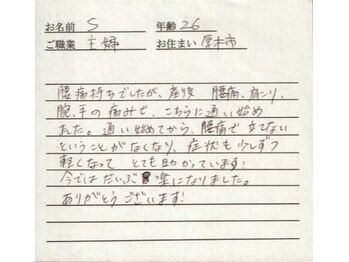 お名前 S 年齢 26
ご職業 主婦 お住まい 厚木市
腰痛持ちでしたが、産後 腰痛、肩こり、
腕、手の痛みで、こちらに通い始め
ました。通い始めてから、腰痛で立てない
ということがなくなり、症状も少しずつ
軽くなって とても助かっています!
今ではだいぶ楽になりました。
ありがとうございます!